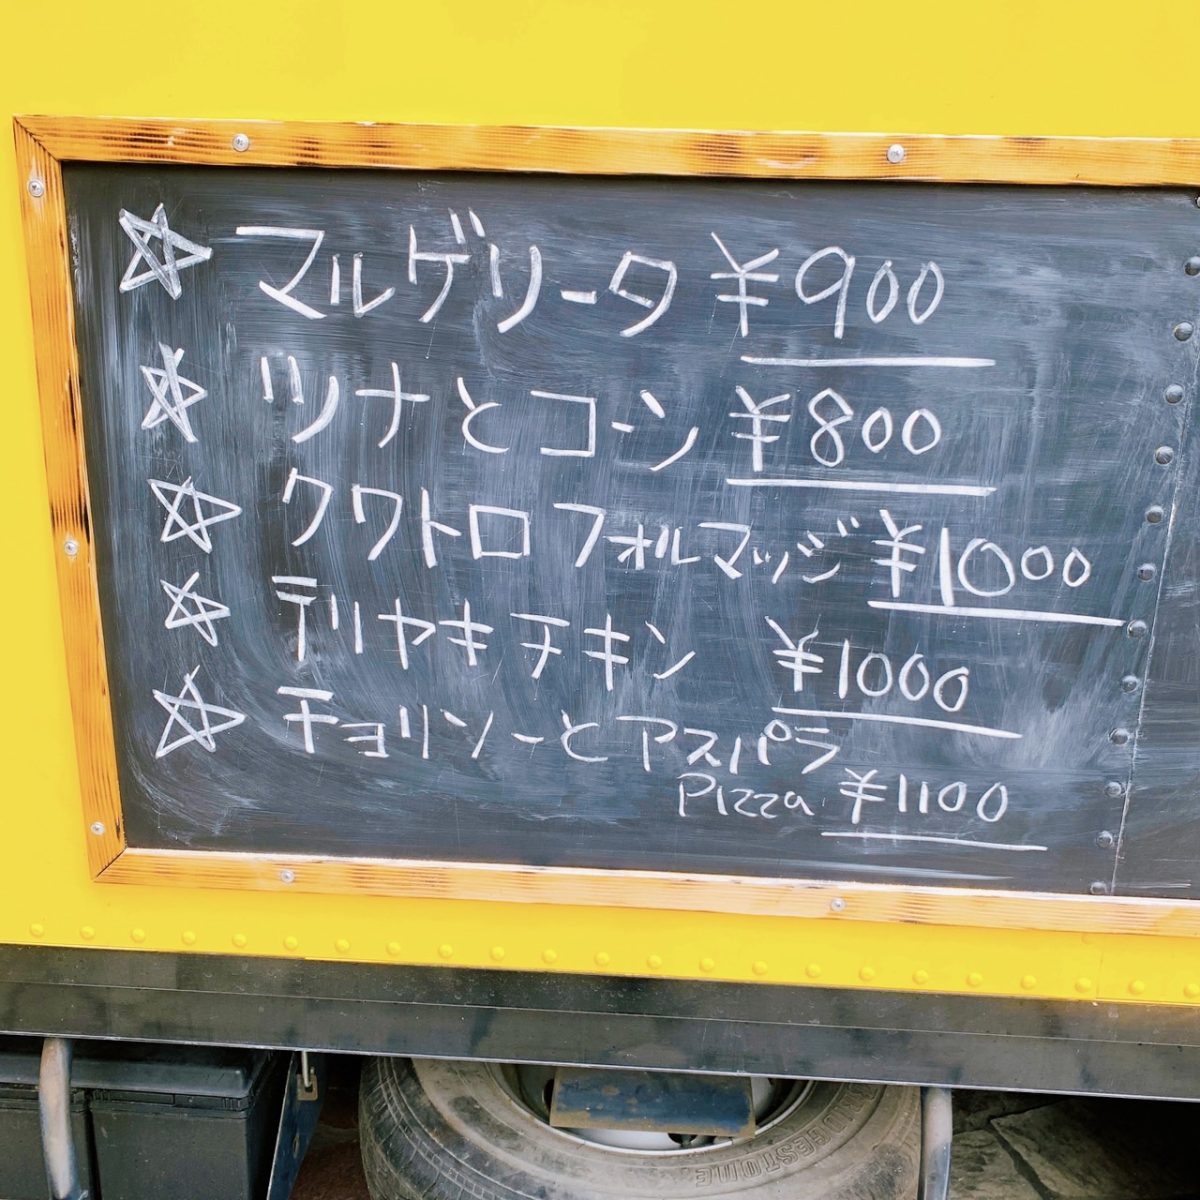 ☆マルゲリータ ¥900
☆ツナとコーン ¥800
☆クワトロフォルマッジ ¥1000
☆テリヤキチキン ¥1000
☆チョリソーとアスパラ
Pizza ¥1100